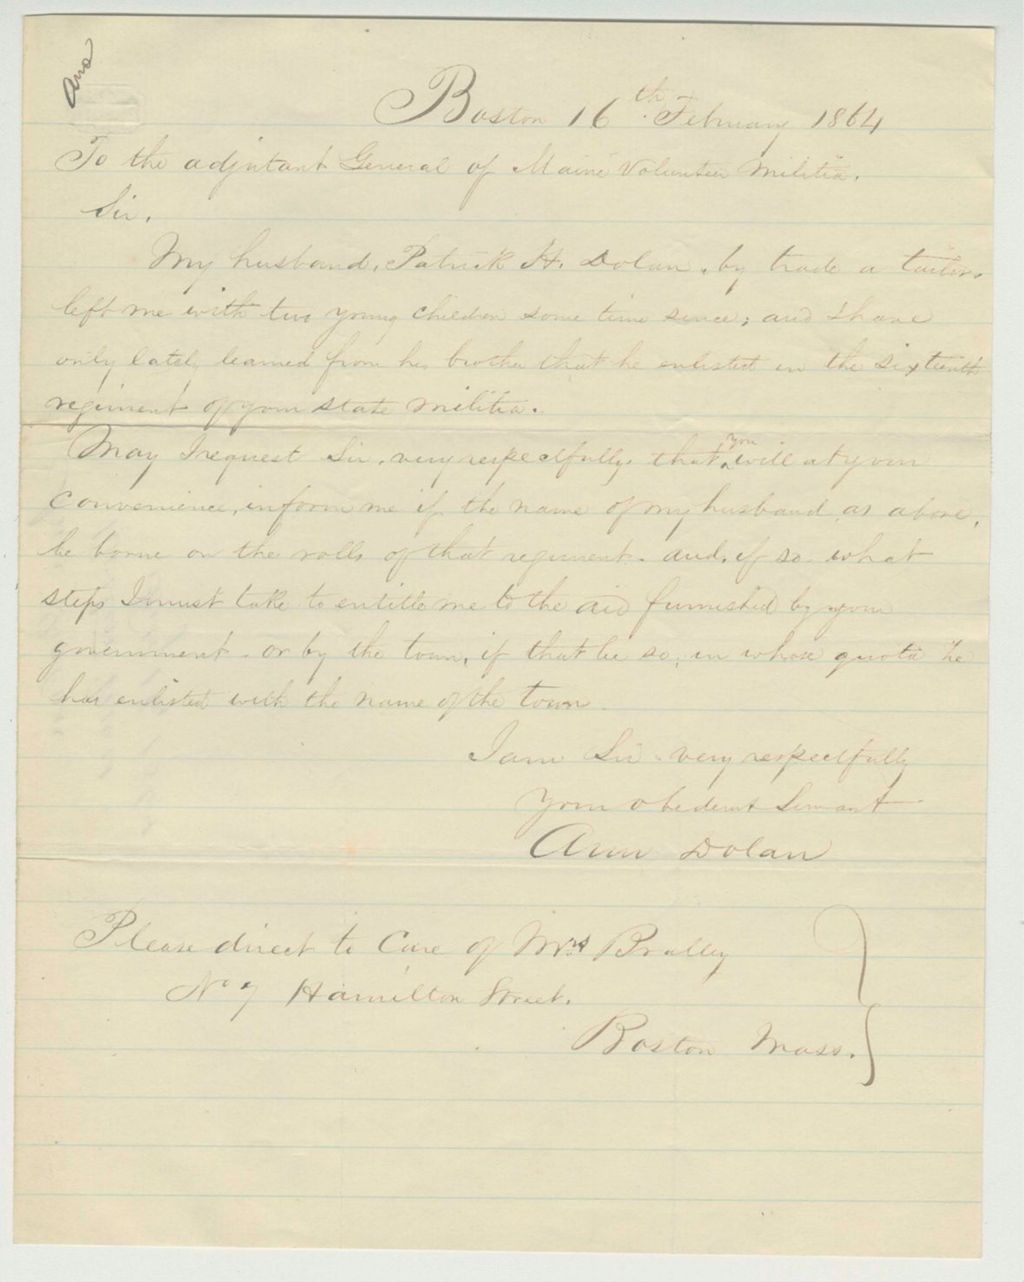 Ans
Boston 16th February 1864
To the adjutant General of Maine Volunteer Militia.
Sir.
My husband, Patrick H. Dolan, by trade a tailor,
left me with two young children some time since; and I have
only lately learned from his brother that he enlisted in the sixteenth
regiment of your state militia.
May I request Sir, very respectfully, that you will at your
convenience, inform me if the name of my husband, as above,
be borne on the rolls of that regiment. and, if so what
steps I must take to entitle me to the aid furnished by your
government. or by the town, if that be so, in whose quota he
has enlisted with the name of the town.
I am Sir. very respectfully
your obedient Servant
Ann Dolan
Please direct to Care of Mrs
No 7 Hamilton Street.
Boston Mass.